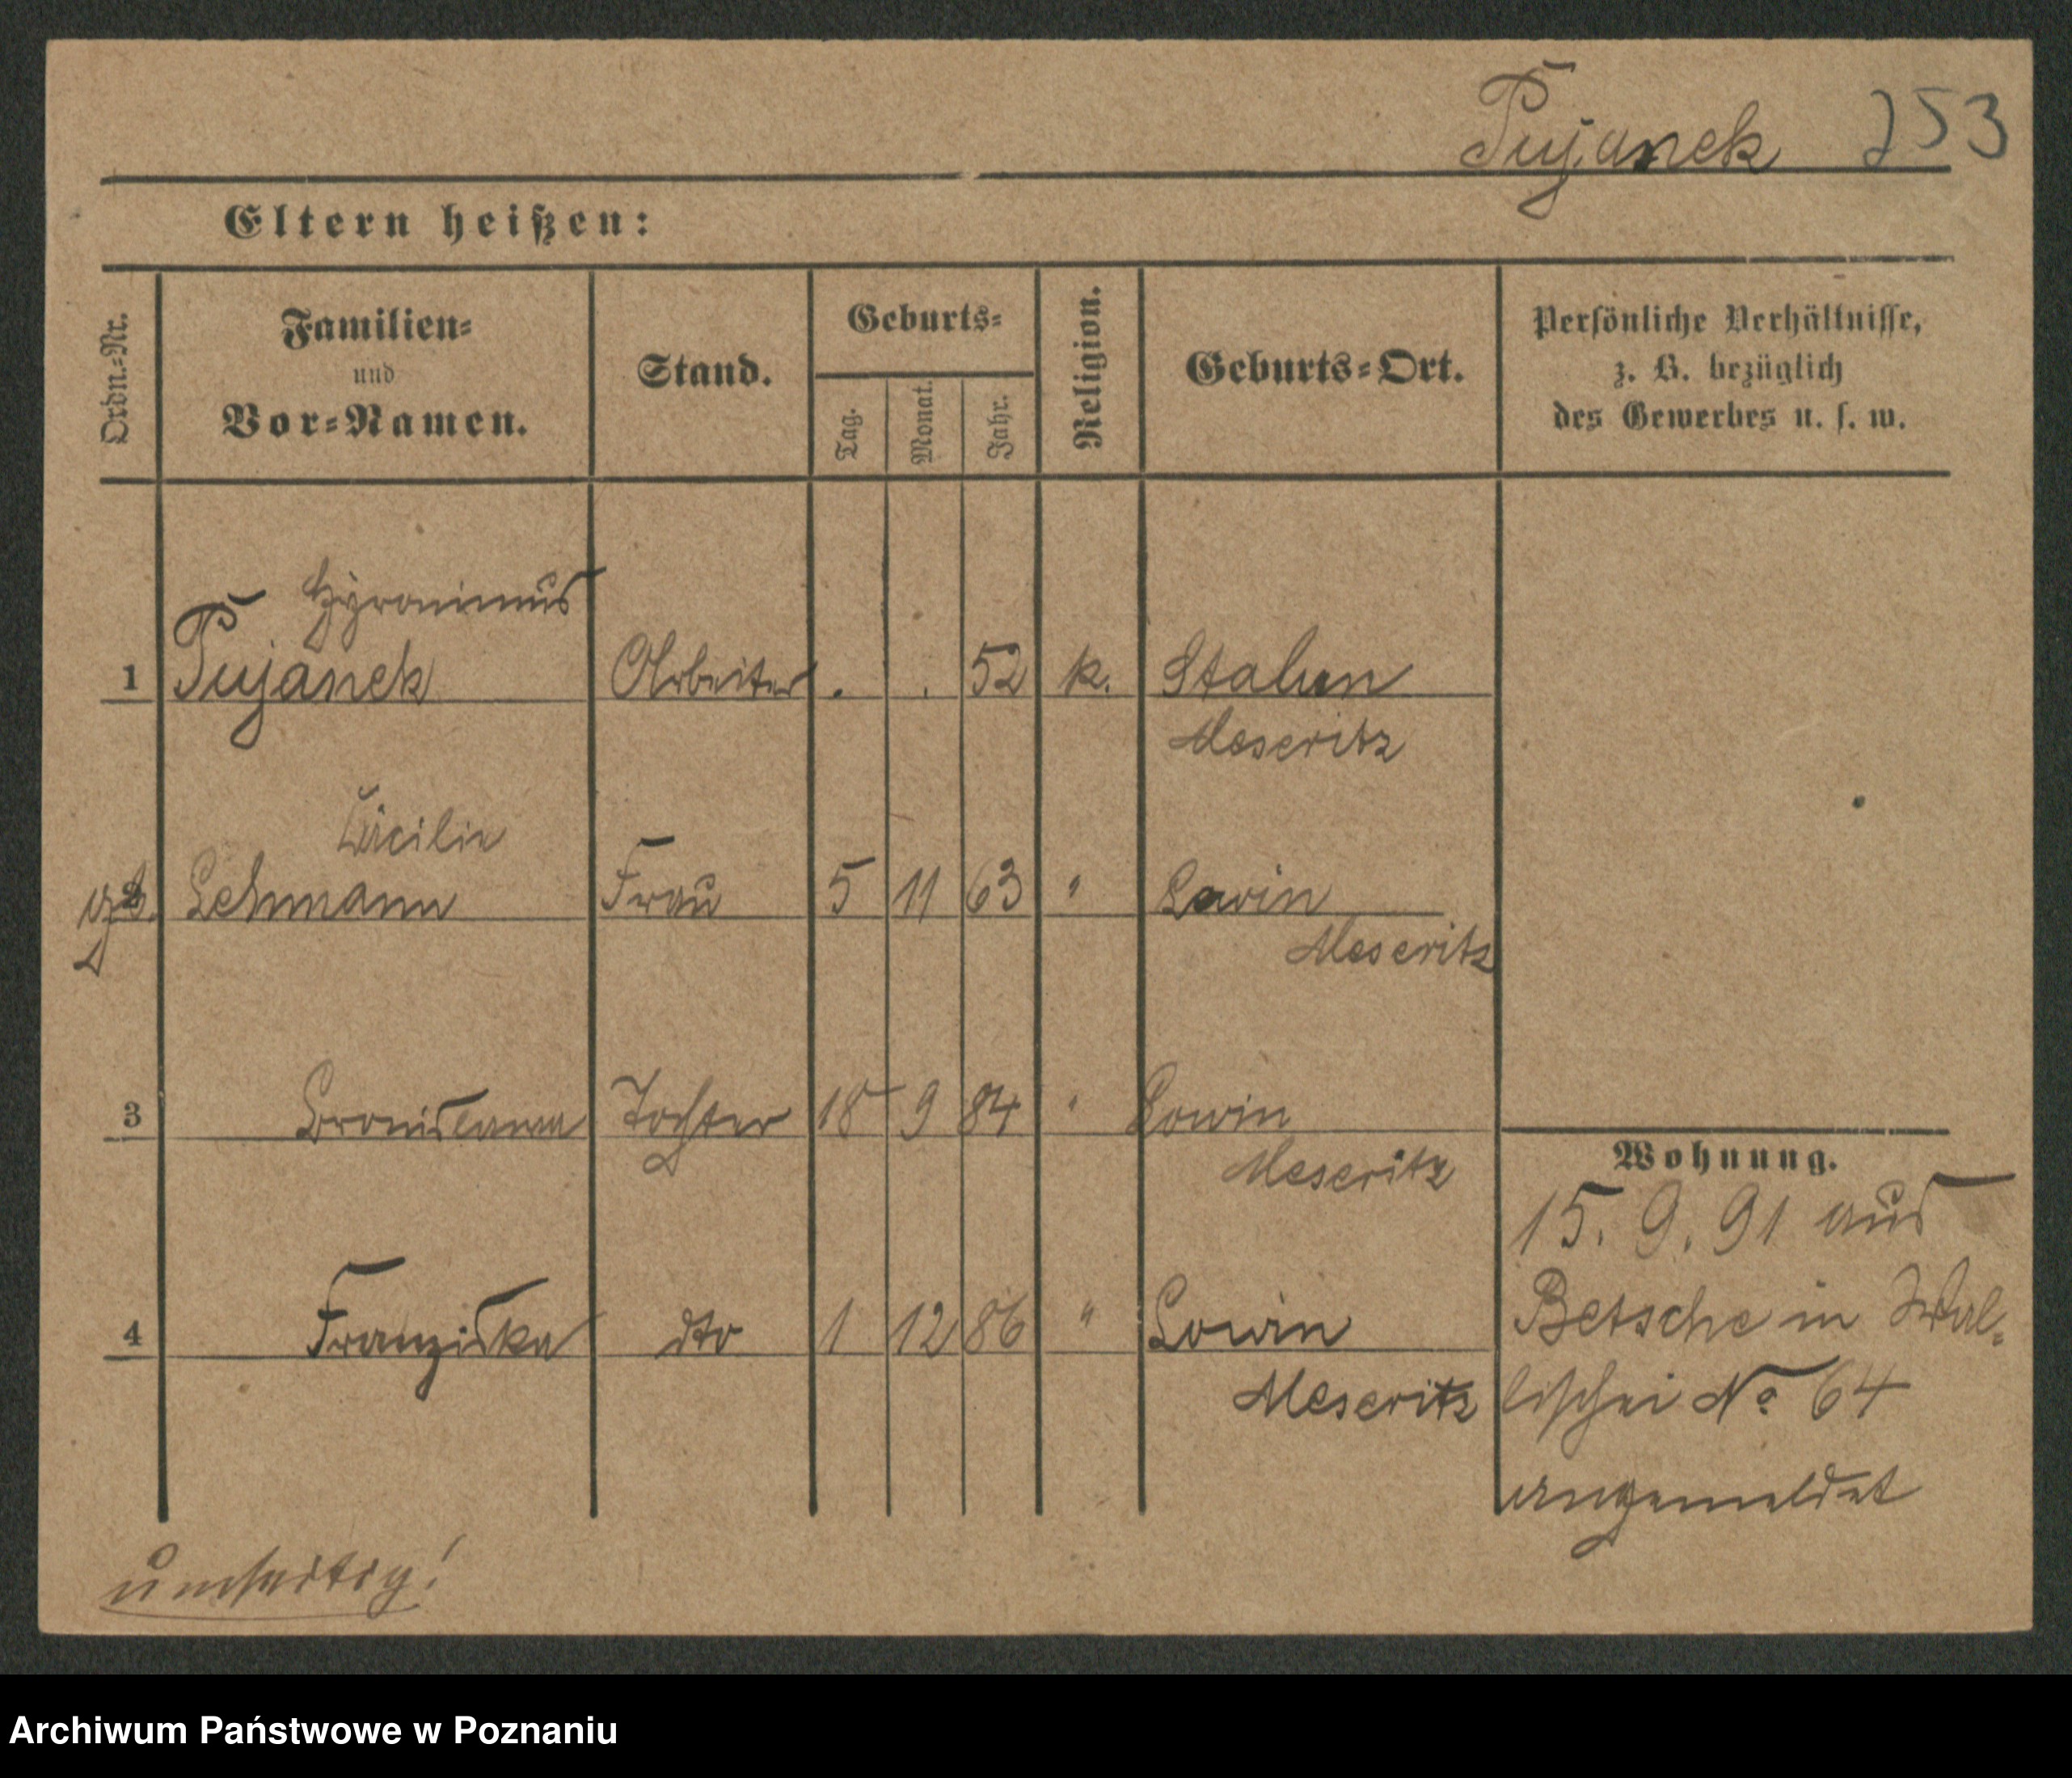 Pujanek 253
Eltern heißen:
Ordn.-Nr.
Familien-
und
Vor-Namen.
Stand.
Geburts-
Tag.
Monat.
Jahr.
Religion.
Geburts-Ort.
Persönliche Verhältnisse,
z. B. bezüglich
des Gewerbes u. s. w.
Hyronimus
1 Pujanek Arbeiter . . 52 k. Stalun
Meseritz
Cäcilie
geb. Lehmann Frau 5 11 63 " Lowin
Meseritz
3 Bronislawa Tochter 18 9 84 " Lowin
Meseritz
4 Franziska dto 1 12 86 " Lowin
Meseritz
Wohnung.
15. 9. 91 aus
Betsche in Wal-
lischei No 64
angemeldet
umseitig!
Archiwum Państwowe w Poznaniu